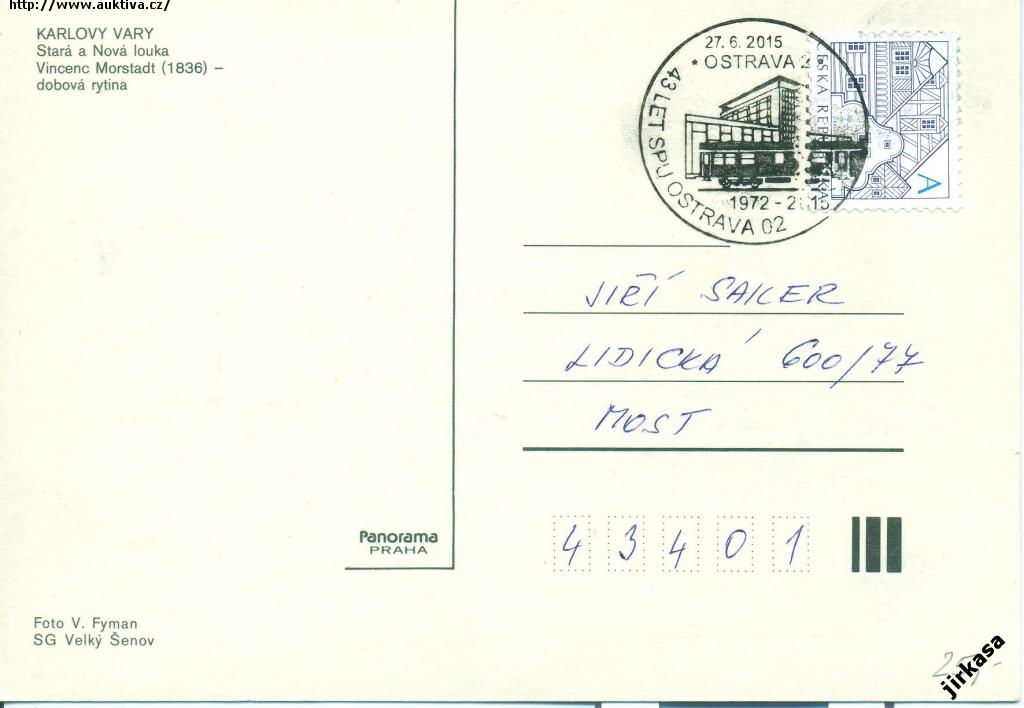 http://www.auktiva.cz/
KARLOVY VARY
Stará a Nová louka
Vincenc Morstadt (1836) –
dobová rytina
27. 6. 2015
* OSTRAVA 2 *
43 LET SPU OSTRAVA 02
1972 - 2015
ČESKÁ REPUBLIKA
A
JIŘÍ SAILER
LIDICKÁ 600/77
MOST
43401
Panorama
PRAHA
Foto V. Fyman
SG Velký Šenov
jirkasa